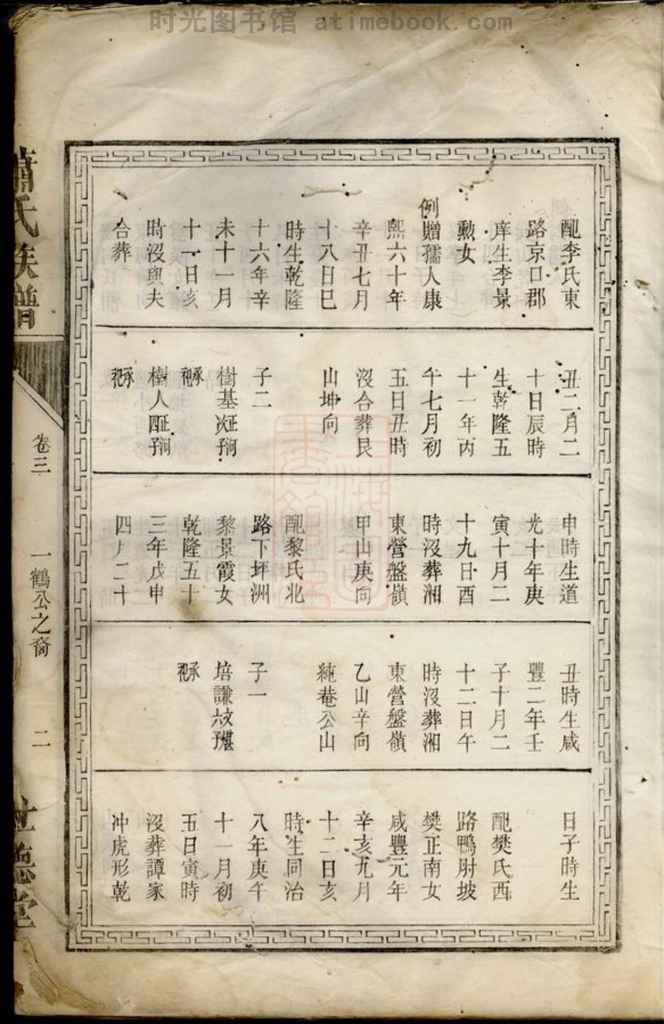 时光图书馆 atimebook.com
配李氏東
路京口郡
庠生李景
勲女
例贈孺人康
熙六十年
辛丑七月
十八日巳
時生乾隆
十六年辛
未十一月
十一日亥
時沒與夫
合葬
丑二月二
十日辰時
生乾隆五
十一年丙
午七月初
五日丑時
沒合葬艮
山坤向
子二
樹基
樹人
申時生道
光十年庚
寅十月二
十九日酉
時沒葬湘
東營盤嶺
甲山庚向
配黎氏北
路下坪洲
黎景霞女
乾隆五十
三年戊申
四月二十
丑時生咸
豐二年壬
子十月二
十二日午
時沒葬湘
東營盤嶺
乙山辛向
純菴公山
子一
培謙
日子時生
配樊氏西
路鴨肘坡
樊正南女
咸豐元年
辛亥九月
十二日亥
時生同治
八年庚午
十一月初
五日寅時
沒葬譚家
冲虎形乾
蕭氏族譜
卷三
一鶴公之裔
二
世德堂